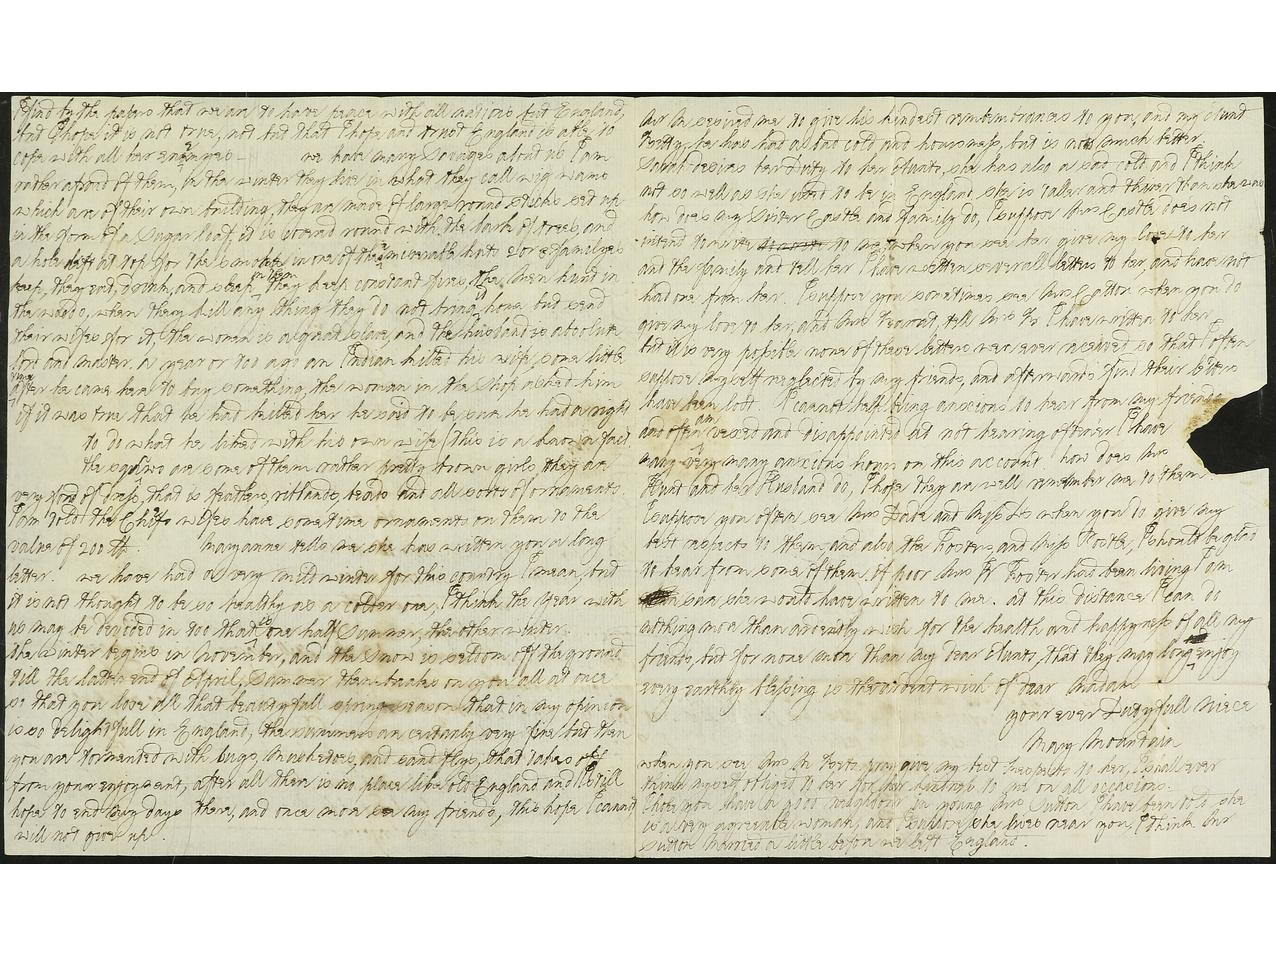 I find by the papers that we are to have peace with all nations but England,
but I hope it is not true, not but that I hope and trust England is able to
cope with all her enemyes - we have many Savages about us I am
rather afraid of them, in the winter they live in what they call wig wams
which are of their own building, they are made of large round sticks set up
in the form of a Sugar loaf, it is coverd round with the bark of trees, and
a hole left at top for the smoke in one of these miserable huts 2 or 3 familyes
keep, they eat, drink, and sleep in them they keep constant fires, the men hunt in
the woods, when they kill any thing they do not bring it home but send
their wifes for it, the woman is a great slave, and the husband is absolute
lord and master. a year or too ago an Indian killed his wife, some little
time after he came here to buy something, the woman in the shop asked him
if it was true that he had killed her he said to be sure he had a right
to do what he liked with his own wife (this is a known fact
the squaws are some of them rather pretty brown girls they are
very fond of dress, that is feathers, ribbands, beads and all sorts of ornaments.
I am told the Chifs wifes have sometime ornaments on them to the
value of 200 ££. Maryanne tells me she has written you a long
letter. we have had a very mild winter for this country I mean, but
it is not thought to be so healthy as a colder one, I think the year with
us may be devided in too that is one half Summer, the other winter.
the winter begins in November, and the snow is seldom off the ground
till the latter end of April, Summer then breaks on you all at once
so that you lose all that beautyfull spring season that in my opinion
is so delightfull in England, the summers are certainly very fine but then
you are tormented with bugs, Musketoes, and sand flys, that takes of
from your enjoyment, after all there is no place like old England and I still
hope to end my days there, and once more see my friends, this hope I cannot
will not give up.
Mr M desired me to give his kindest remembrances to you, and my Aunt
Betty, he has had a bad cold and hoarsness, but is now much better
Sarah desires her duty to her Aunts, she has also a bad cold and I think
not so well as she used to be in England she is taller and thiner than she was
how does my Sister Castle and family do, I suppose Mrs Castle does not
intend to write to me, when you see her give my love to her
and the family and tell her I have written severall letters to her, and have not
had one from her. I suppose you sometimes see Mrs Cotton when you do
give my love to her, and Mrs tell Mrs I have written to her
but it is very possible none of these letters were ever received so that I often
suppose myself neglected by my friends, and afterwards find their letters
have been lost. I cannot help being anxious to hear from my friends
and often am vexed and disappointed at not hearing oftener I have
many very many anxious hours on this account how does Mrs
Hunt and her Husband do, I hope they are well remember me to them.
I suppose you often see Mrs Dade and Miss when you do give my
best respects to them, and also the Fosters, and Miss I should be glad
to hear from some of them, if poor Mrs Foster had been living I am
sure she would have written to me. at this distance I can do
nothing more than ardently wish for the health and happyness of all my
friends, but for none more than my dear Aunts, that they may long enjoy
every earthly blessing is the ardent wish of dear Madam
your ever Dutyfull Niece
Mary Mountain
when you see Mrs M pray give my best respects to her, I shall ever
think myself obliged to her for her kindness to me on all occasions.
I hope you have a good neighbour in young Mrs Sutton I have been told she
is a very agreeable woman, and I suppose she lives near you, I think Mr
Sutton Married a little before we left England.